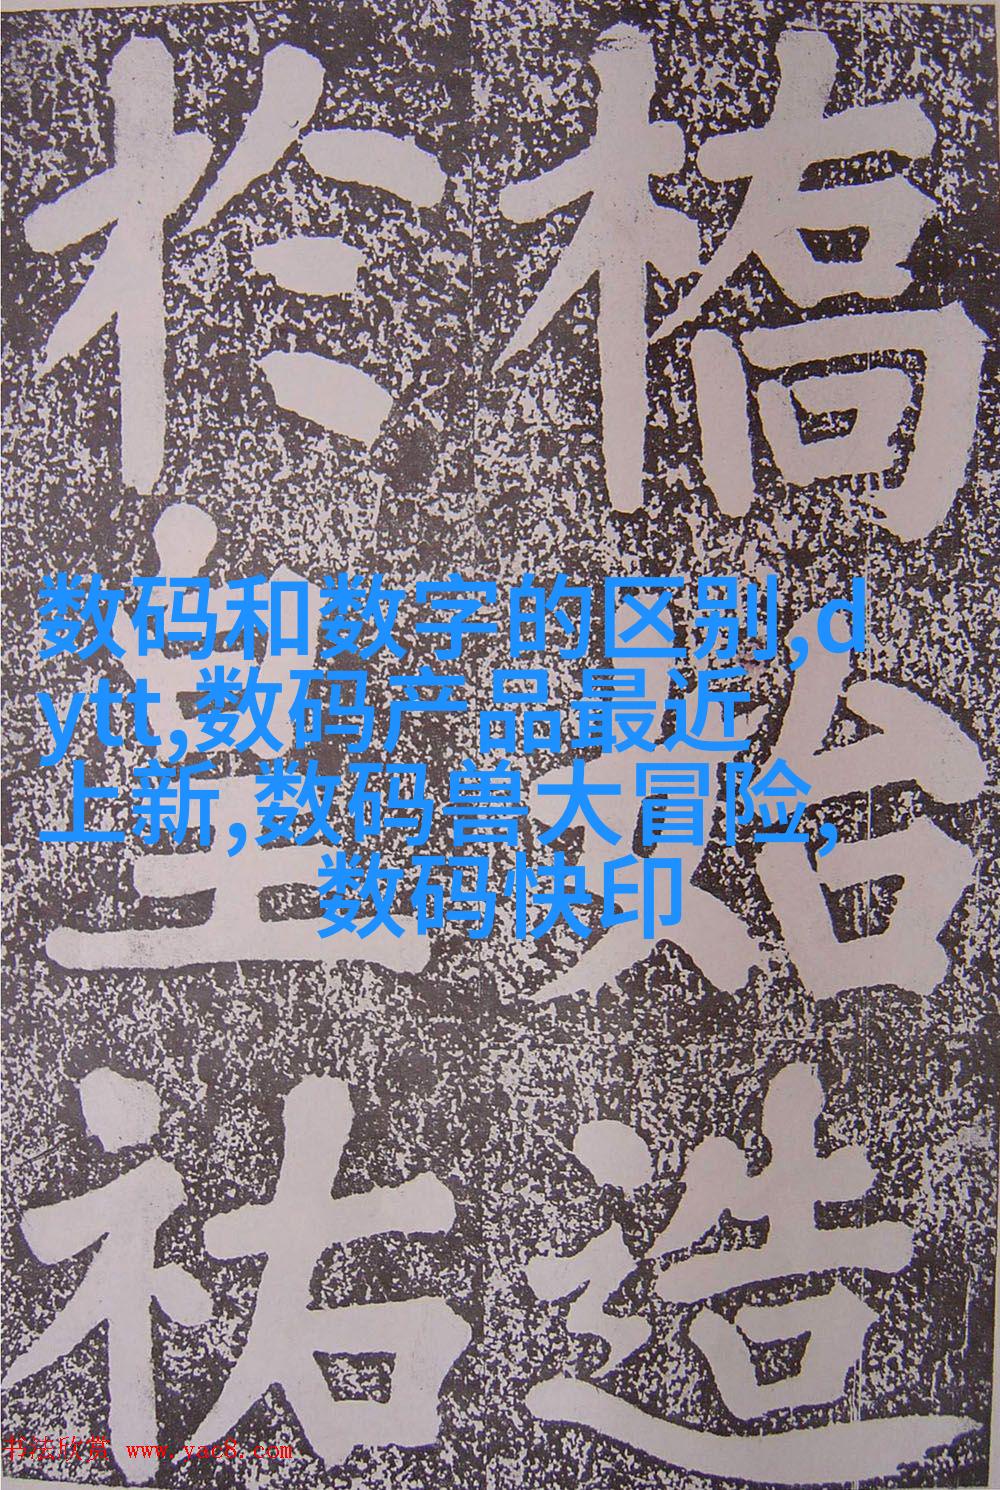 橋始造
於皇祐
数码和数字的区别,d
ytt,数码产品最近
上新,数码兽大冒险,
数码快印
书法欣赏 www.yac8.com